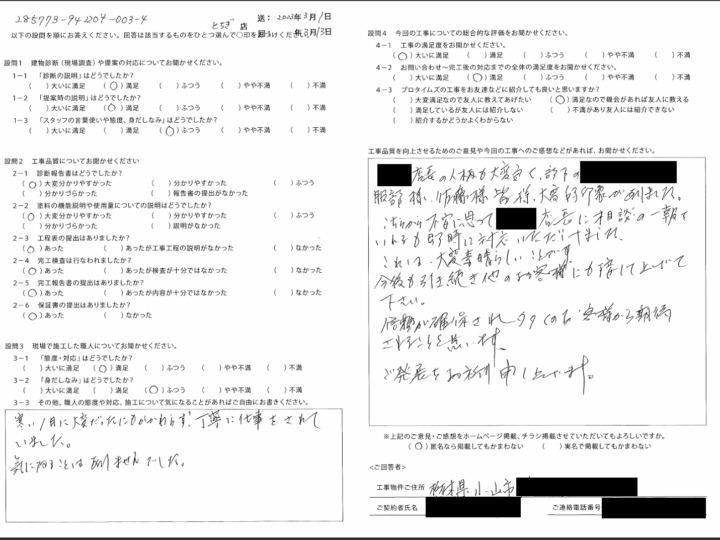 285773-94 2204-003-4
とちぎ 店
送: 2023年3月1日
以下の設問を順にお答えください。回答は該当するものをひとつ選んで○印を お願いします。
回: 年3月13日
設問1 建物診断（現場調査）や提案の対応についてお聞かせください
1−1 「診断の説明」はどうでしたか?
( )大いに満足 (○)満足 ( )ふつう ( )やや不満 ( )不満
1−2 「提案時の説明」はどうでしたか?
( )大いに満足 (○)満足 ( )ふつう ( )やや不満 ( )不満
1−3 「スタッフの言葉使いや態度、身だしなみ」はどうでしたか?
( )大いに満足 ( )満足 (○)ふつう ( )やや不満 ( )不満
設問2 工事品質についてお聞かせください
2−1 診断報告書はどうでしたか?
(○)大変分かりやすかった ( )分かりやすかった ( )ふつう
( )分かりづらかった ( )報告書の提出がなかった
2−2 塗料の機能説明や使用量についての説明はどうでしたか?
(○)大変分かりやすかった ( )分かりやすかった ( )ふつう
( )分かりづらかった ( )説明がなかった
2−3 工程表の提出はありましたか?
(○)あった ( )あったが工事工程の説明がなかった ( )なかった
2−4 完工検査は行なわれましたか?
(○)あった ( )あったが検査が十分ではなかった ( )なかった
2−5 完工報告書の提出はありましたか?
(○)あった ( )あったが内容が十分ではなかった ( )なかった
2−6 保証書の提出はありましたか?
(○)あった ( )なかった
設問3 現場で施工した職人についてお聞かせください。
3−1 「態度・対応」はどうでしたか?
( )大いに満足 (○)満足 ( )ふつう ( )やや不満 ( )不満
3−2 「身だしなみ」はどうでしたか?
( )大いに満足 ( )満足 (○)ふつう ( )やや不満 ( )不満
3−3 その他、職人の態度や対応、施工について気になることがあればご自由にお書きください。
寒い1月に大変だったにもかかわらず、丁寧に仕事をされて
いました。
気になることはありませんでした。
設問4 今回の工事についての総合的な評価をお聞かせください。
4−1 工事の満足度をお聞かせください。
(○)大いに満足 ( )満足 ( )ふつう ( )やや不満 ( )不満
4−2 お問い合わせ〜完工後の対応までの全体の満足度をお聞かせください。
( )大いに満足 (○)満足 ( )ふつう ( )やや不満 ( )不満
4−3 プロタイムズの工事をお友達などに紹介しても良いと思いますか?
( )大変満足なので友人に教えてあげたい (○)満足なので機会があれば友人に教える
( )満足しているが友人には紹介しない ( )不満があり友人には紹介できない
( )紹介するかどうかよくわからない
工事品質を向上させるためのご意見や今回の工事へのご感想などがあれば、お聞かせください。
店長の人柄も大変良く、部下の
服部様、佐藤様 皆様、大変好印象がありました。
こちらから不安に思って 店長に相談の一報を
いれても即時に対応いただけました。
これは、大変素晴らしいことです。
今後も引き続き他のお客様にも接して上げて
下さい。
信頼が確保され 多くのお客様から期待
されることを思います。
ご発展をお祈り申し上げます。
※上記のご意見・ご感想をホームページ掲載、チラシ掲載させていただいてもよろしいですか。
(○)匿名なら掲載してもかまわない ( )実名で掲載してもかまわない
<ご回答者>
工事物件ご住所 栃木県小山市
ご契約者氏名 ご連絡電話番号